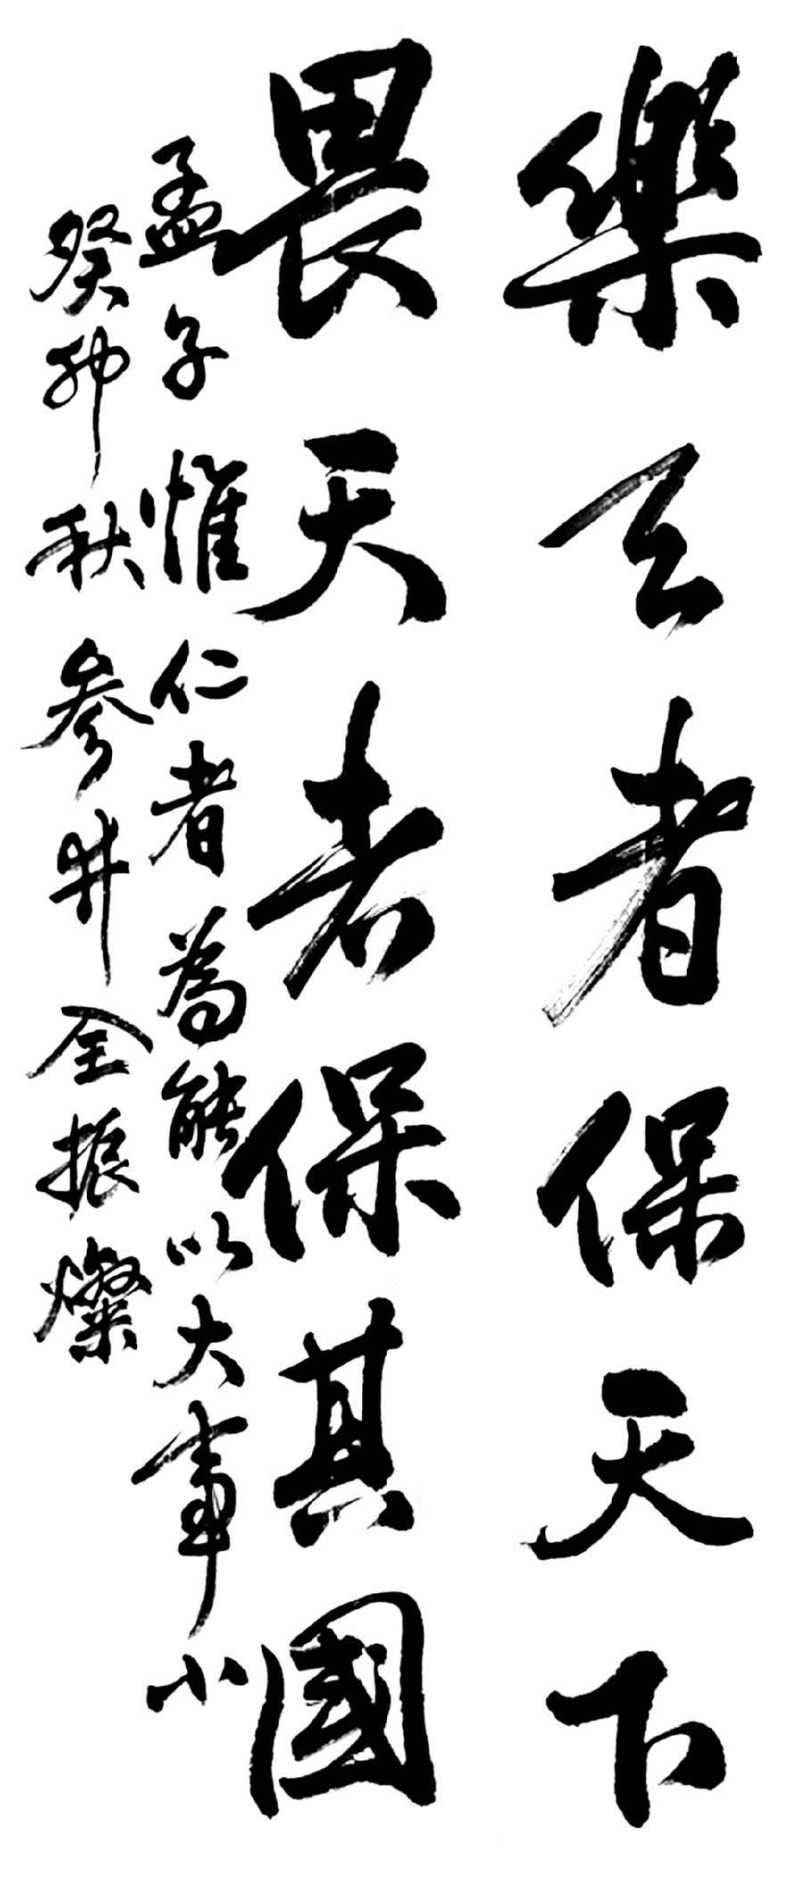 樂天者保天下
畏天者保其國
孟子 惟仁者為能以大事小
癸卯秋 參井 全振燦